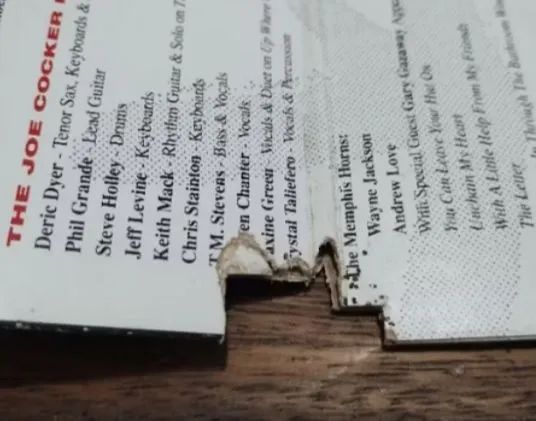 THE JOE COCKER
Deric Dyer - Tenor Sax, Keyboards &
Phil Grande - Lead Guitar
Steve Holley - Drums
Jeff Levine - Keyboards
Keith Mack - Rhythm Guitar & Solo on
Chris Stainton - Keyboards
T.M. Stevens - Bass & Vocals
en Chanter - Vocals
axine Green - Vocals & Duet on Up Where
rystal Taliefero - Vocals & Percussion
The Memphis Horns:
Wayne Jackson
Andrew Love
With Special Guest Gary Gazaway
You Can Leave Your Hat On
Unchain My Heart
With A Little Help From My Friends
The Letter
In Through The Bathroom